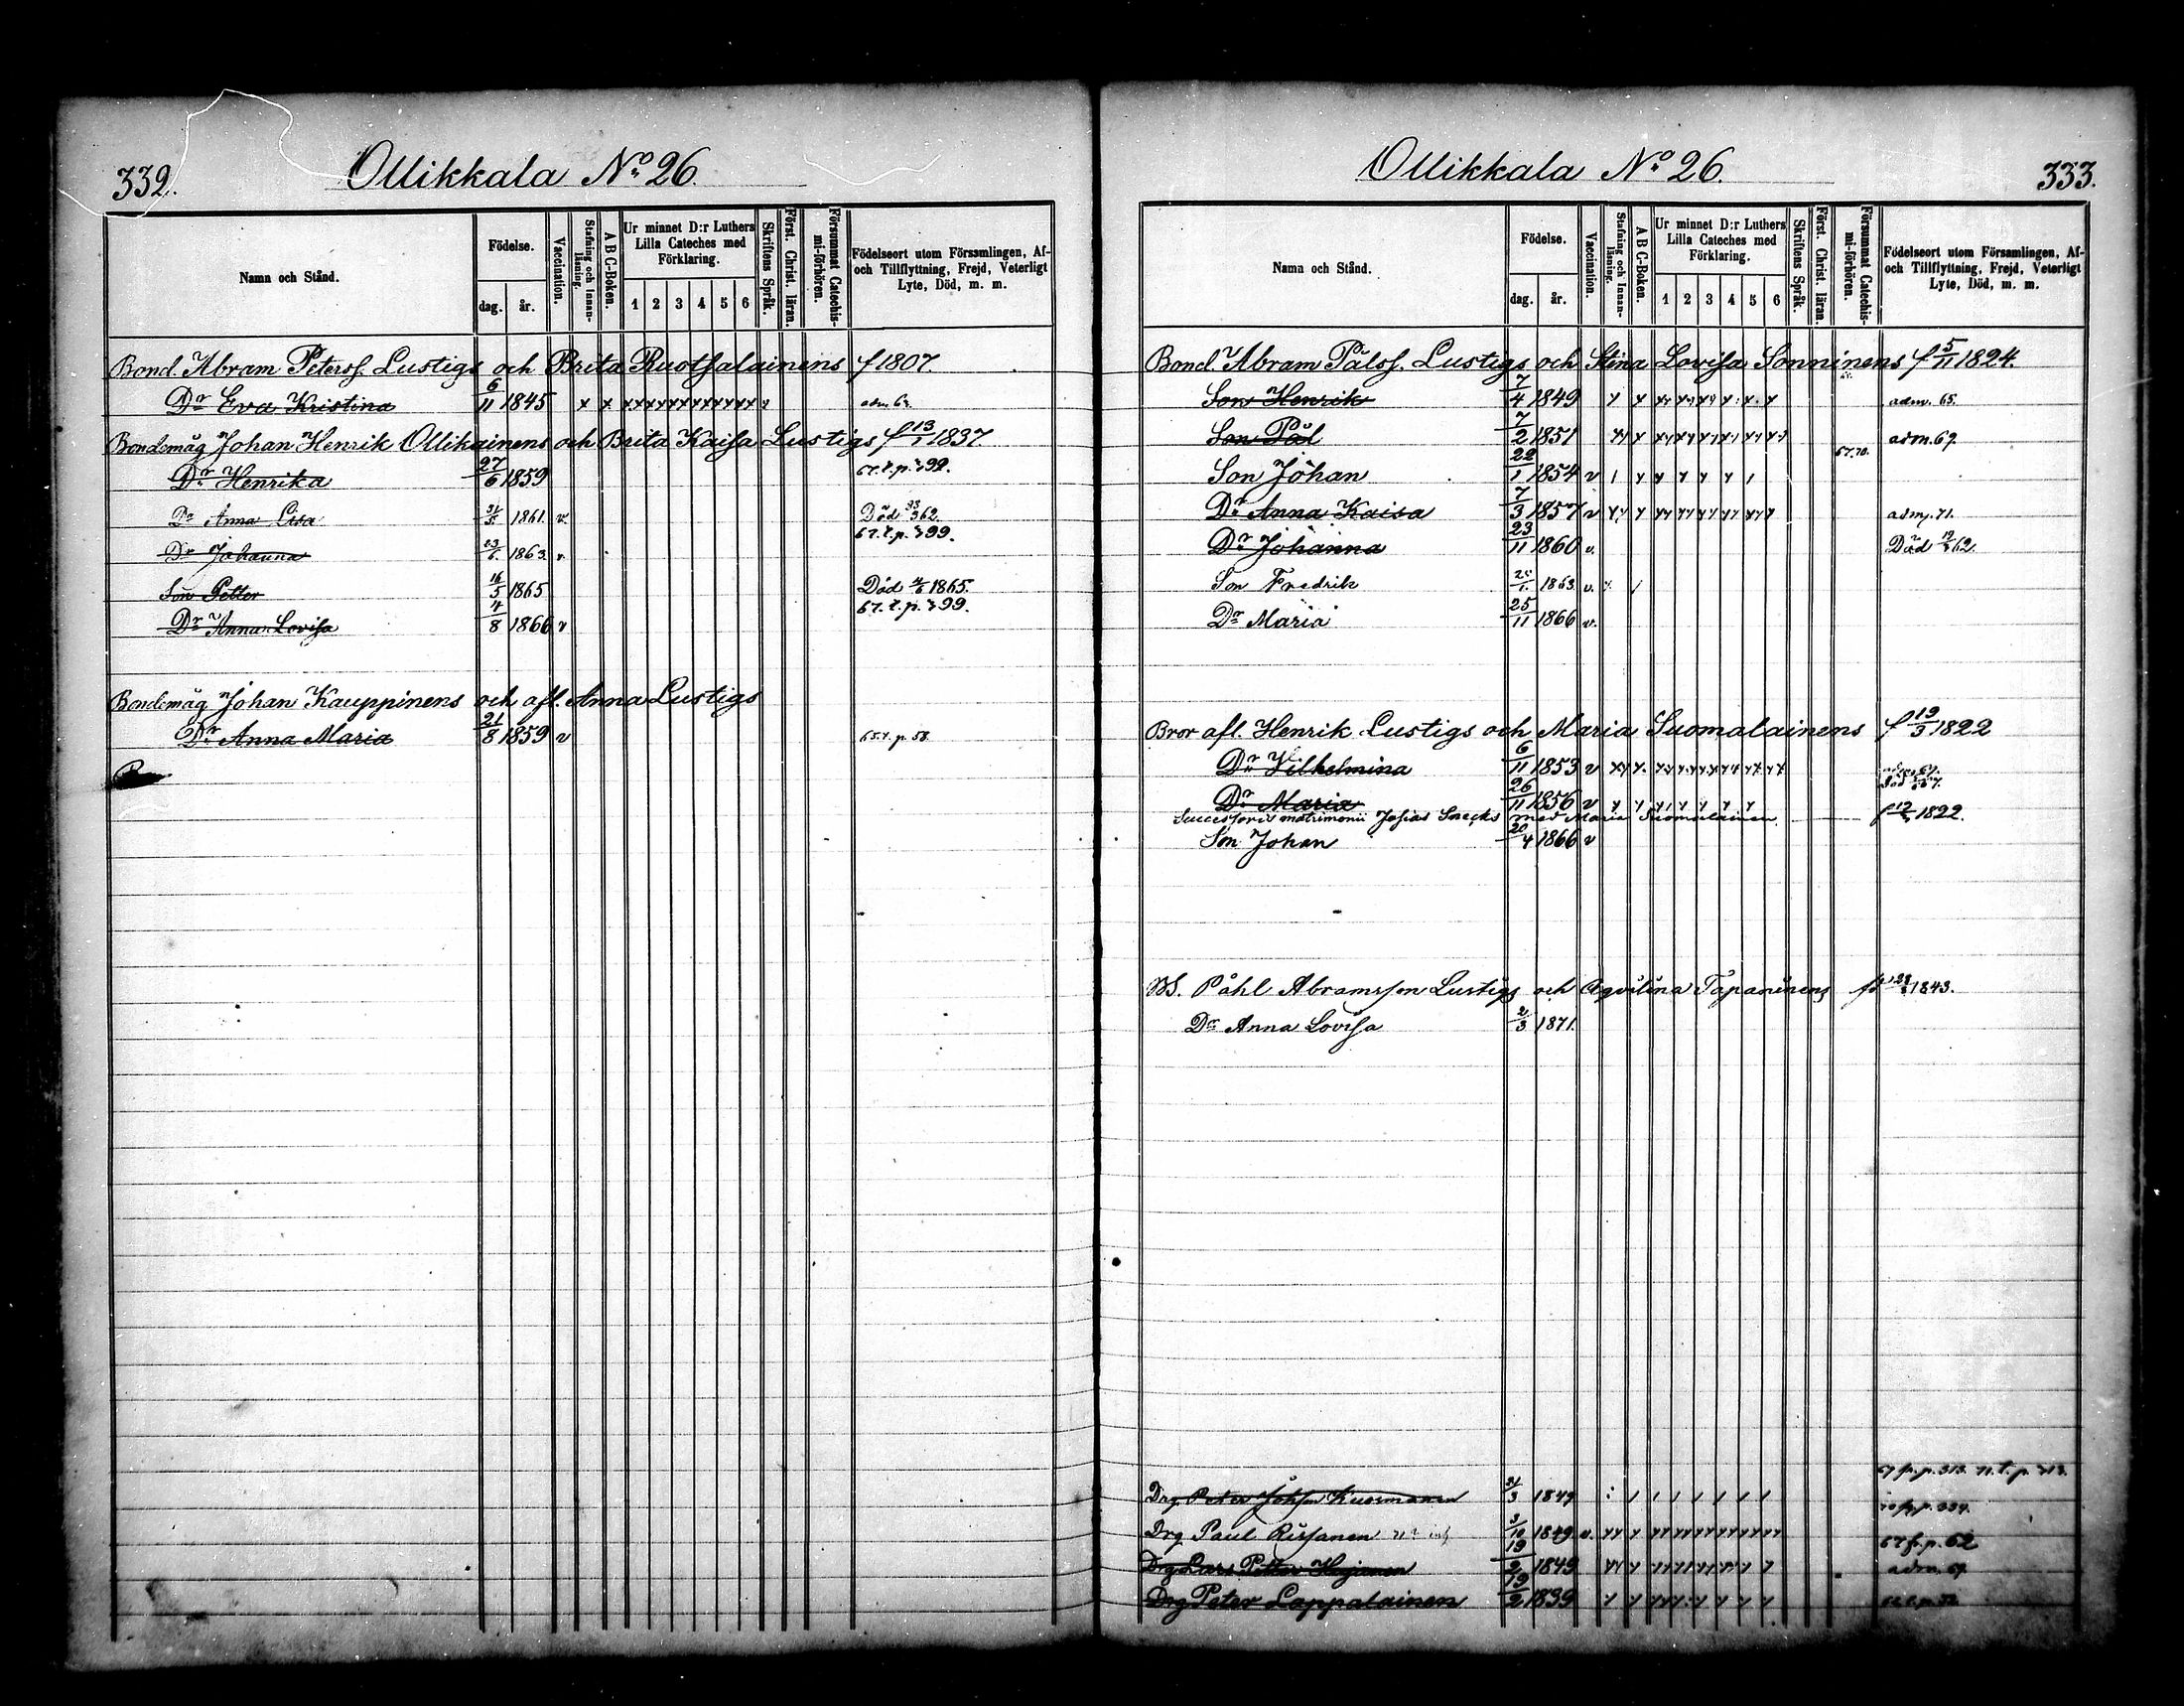 332.
Ollikkala No 26.
Namn och Stånd.
Födelse.
dag.
år.
Vaccination.
Stafning och Innan-läsning.
A B C-Boken.
Ur minnet D:r Luthers Lilla Cateches med Förklaring.
1 2 3 4 5 6
Skriftens Språk.
Först. Christ. läran.
Försummat Catechis-mi-förhören.
Födelseort utom Församlingen, Af- och Tillflyttning, Frejd, Veterligt Lyte, Död, m. m.
Bond. Abram Peterss. Lustigs och Brita Ruotsalainens f 1807.
Dr Eva Kristina 6/11 1845 x x
Bondemåg Johan Henrik Ollikainens och Brita Kaisa Lustigs f 13/1 1837.
Dr Henrika 27/6 1859
Dr Anna Lisa 31/5 1861. v. Död 62.
Dr Johanna 23/6 1863. v.
Son Petter 16/5 1865 Död 1865.
Dr Anna Lovisa 4/8 1866 v
Bondemåg Johan Kauppinens och afl. Anna Lustigs
Dr Anna Maria 21/8 1859 v
Ollikkala No 26.
333.
Namn och Stånd.
Födelse.
dag.
år.
Vaccination.
Stafning och Innan-läsning.
A B C-Boken.
Ur minnet D:r Luthers Lilla Cateches med Förklaring.
1 2 3 4 5 6
Skriftens Språk.
Först. Christ. läran.
Försummat Catechis-mi-förhören.
Födelseort utom Församlingen, Af- och Tillflyttning, Frejd, Veterligt Lyte, Död, m. m.
Bond. Abram Pålss. Lustigs och Stina Lovisa Sonninens f 5/11 1824.
Son Henrik 7/4 1849 adm. 65.
Son Pål 7/2 1851 adm. 69.
Son Johan 22/1 1854 v 67.70.
Dr Anna Kaisa 7/3 1857 v adm. 71.
Dr Johanna 23/11 1860 v. Död 62.
Son Fredrik 1863 v.
Dr Maria 25/11 1866 v.
Bror afl. Henrik Lustigs och Maria Suomalainens f 19/3 1822
Dr Vilhelmina 6/11 1853 v
Dr Maria 26/11 1856 v
Successoris matrimonii Josias med Maria Suomalainen f 1822.
Son Johan 20/4 1866 v
Påhl Abramsson Lustigs och Agvilina Tapaninens 1843.
Dr Anna Lovisa 2/3 1871.
Drg Peter Johsn Kuosmanen 31/3 1849
Drg Paul Rissanen 3/10 1849 v.
67 fr. p. 62
Drg Lars Petter 19/2 1849 adm. 67.
Drg Peter Lappalainen 19/2 1839